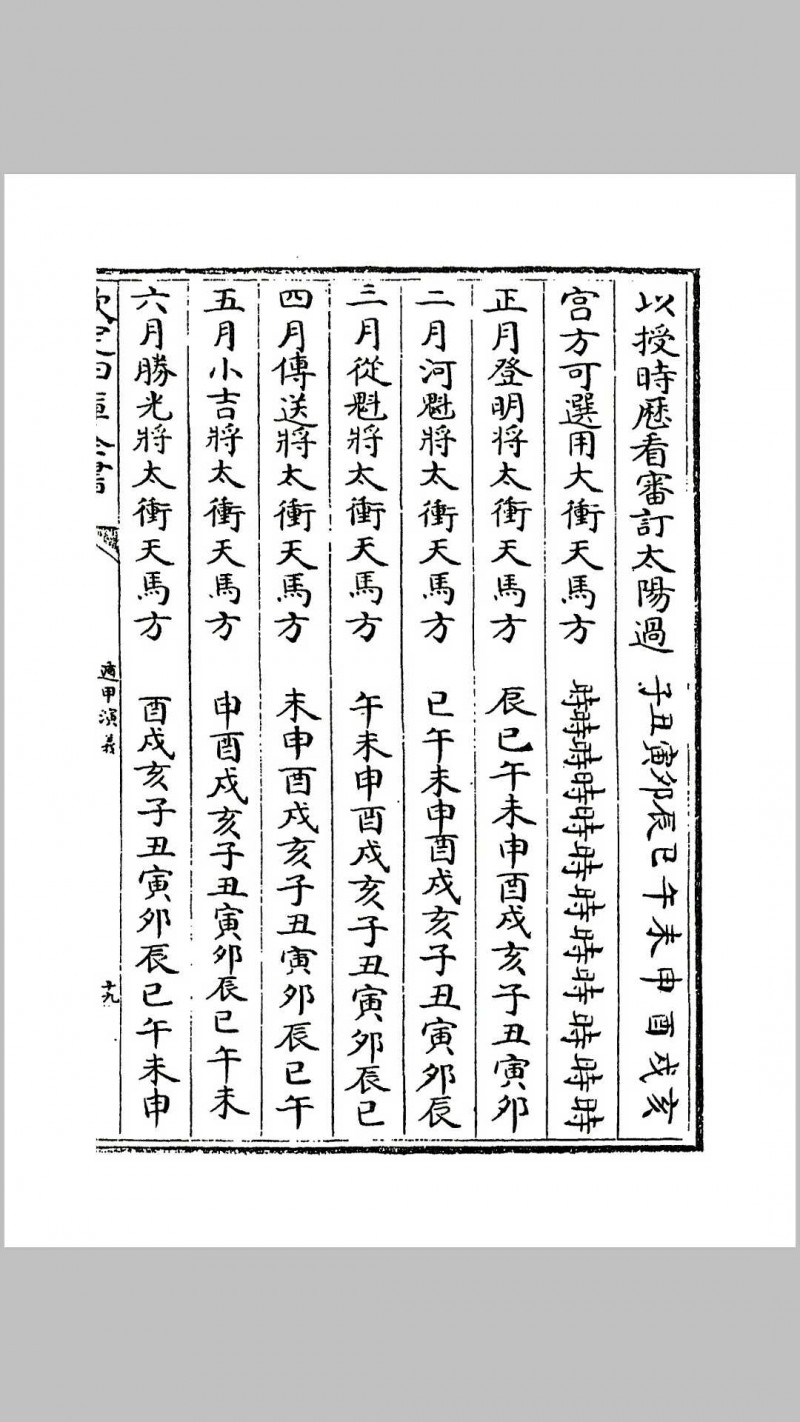 以授時歴看審訂太陽過 子丑寅卯辰巳午未申酉戌亥
宫方可選用大衝天馬方 時時時時時時時時時時時時
正月登明将太衝天馬方 辰巳午未申酉戌亥子丑寅卯
二月河魁將太衝天馬方 巳午未申酉戌亥子丑寅卯辰
三月從魁將太衝天馬方 午未申酉戌亥子丑寅卯辰巳
四月傳送將太衝天馬方 未申酉戌亥子丑寅卯辰巳午
五月小吉將太衝天馬方 申酉戌亥子丑寅卯辰巳午未
六月勝光將太衝天馬方 酉戌亥子丑寅卯辰巳午未申
欽定四庫全書
遁甲演義
十九